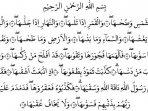 بِسْمِ اللَّهِ الرَّحْمَٰنِ الرَّحِيمِ
وَالشَّمْسِ وَضُحَىٰهَا ۝ وَالْقَمَرِ إِذَا تَلَىٰهَا ۝ وَالنَّهَارِ إِذَا جَلَّىٰهَا ۝ وَاللَّيْلِ إِذَا
يَغْشَىٰهَا ۝ وَالسَّمَاءِ وَمَا بَنَىٰهَا ۝ وَالْأَرْضِ وَمَا طَحَىٰهَا ۝ وَنَفْسٍ وَمَا
سَوَّىٰهَا ۝ فَأَلْهَمَهَا فُجُورَهَا وَتَقْوَىٰهَا ۝ قَدْ أَفْلَحَ مَن زَكَّىٰهَا ۝ وَقَدْ
خَابَ مَن دَسَّىٰهَا ۝ كَذَّبَتْ ثَمُودُ بِطَغْوَىٰهَا ۝ إِذِ انبَعَثَ أَشْقَىٰهَا ۝ فَقَالَ لَهُمْ
رَسُولُ اللَّهِ نَاقَةَ اللَّهِ وَسُقْيَىٰهَا ۝ فَكَذَّبُوهُ فَعَقَرُوهَا فَدَمْدَمَ عَلَيْهِمْ
رَبُّهُم بِذَنبِهِمْ فَسَوَّىٰهَا ۝ وَلَا يَخَافُ عُقْبَىٰهَا ۝